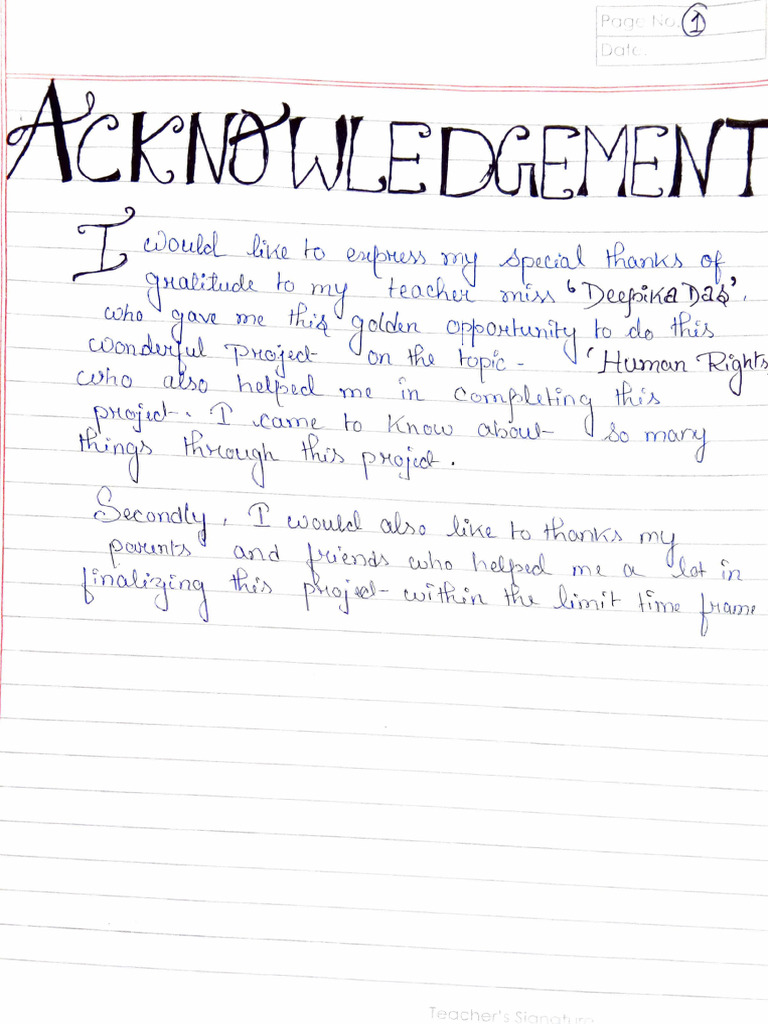 Page No. 1
Date.
ACKNOWLEDGEMENT
I would like to express my special thanks of
gratitude to my teacher miss 'Deepika Das'.
who gave me this golden opportunity to do this
wonderful project on the topic - 'Human Rights
who also helped me in completing this
project. I came to know about so many
things through this project.
Secondly, I would also like to thanks my
parents and friends who helped me a lot in
finalizing this project within the limit time frame
Teacher's Signature